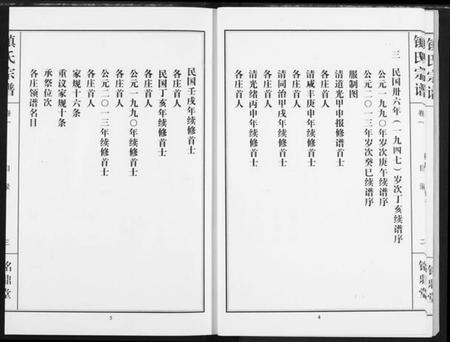 三 民国卅六年（一九四七）岁次丁亥续谱序
公元一九九〇年岁次庚午续谱序
公元二〇一三年岁次癸巳续谱序
服制图
清道光甲申报修谱首士
各庄首人
清咸丰庚申年续修首士
各庄首人
清同治甲戌年续修首士
各庄首人
清光绪丙申年续修首士
4
民国壬戌年续修首士
各庄首人
民国丁亥年续修首士
各庄首人
公元一九九〇年续修首士
各庄首人
公元二〇一三年续修首士
各庄首人
家规十六条
重议家规十条
承祭位次
各庄领谱名目
5
镇氏宗谱
卷一
目录
三
铭鼎堂